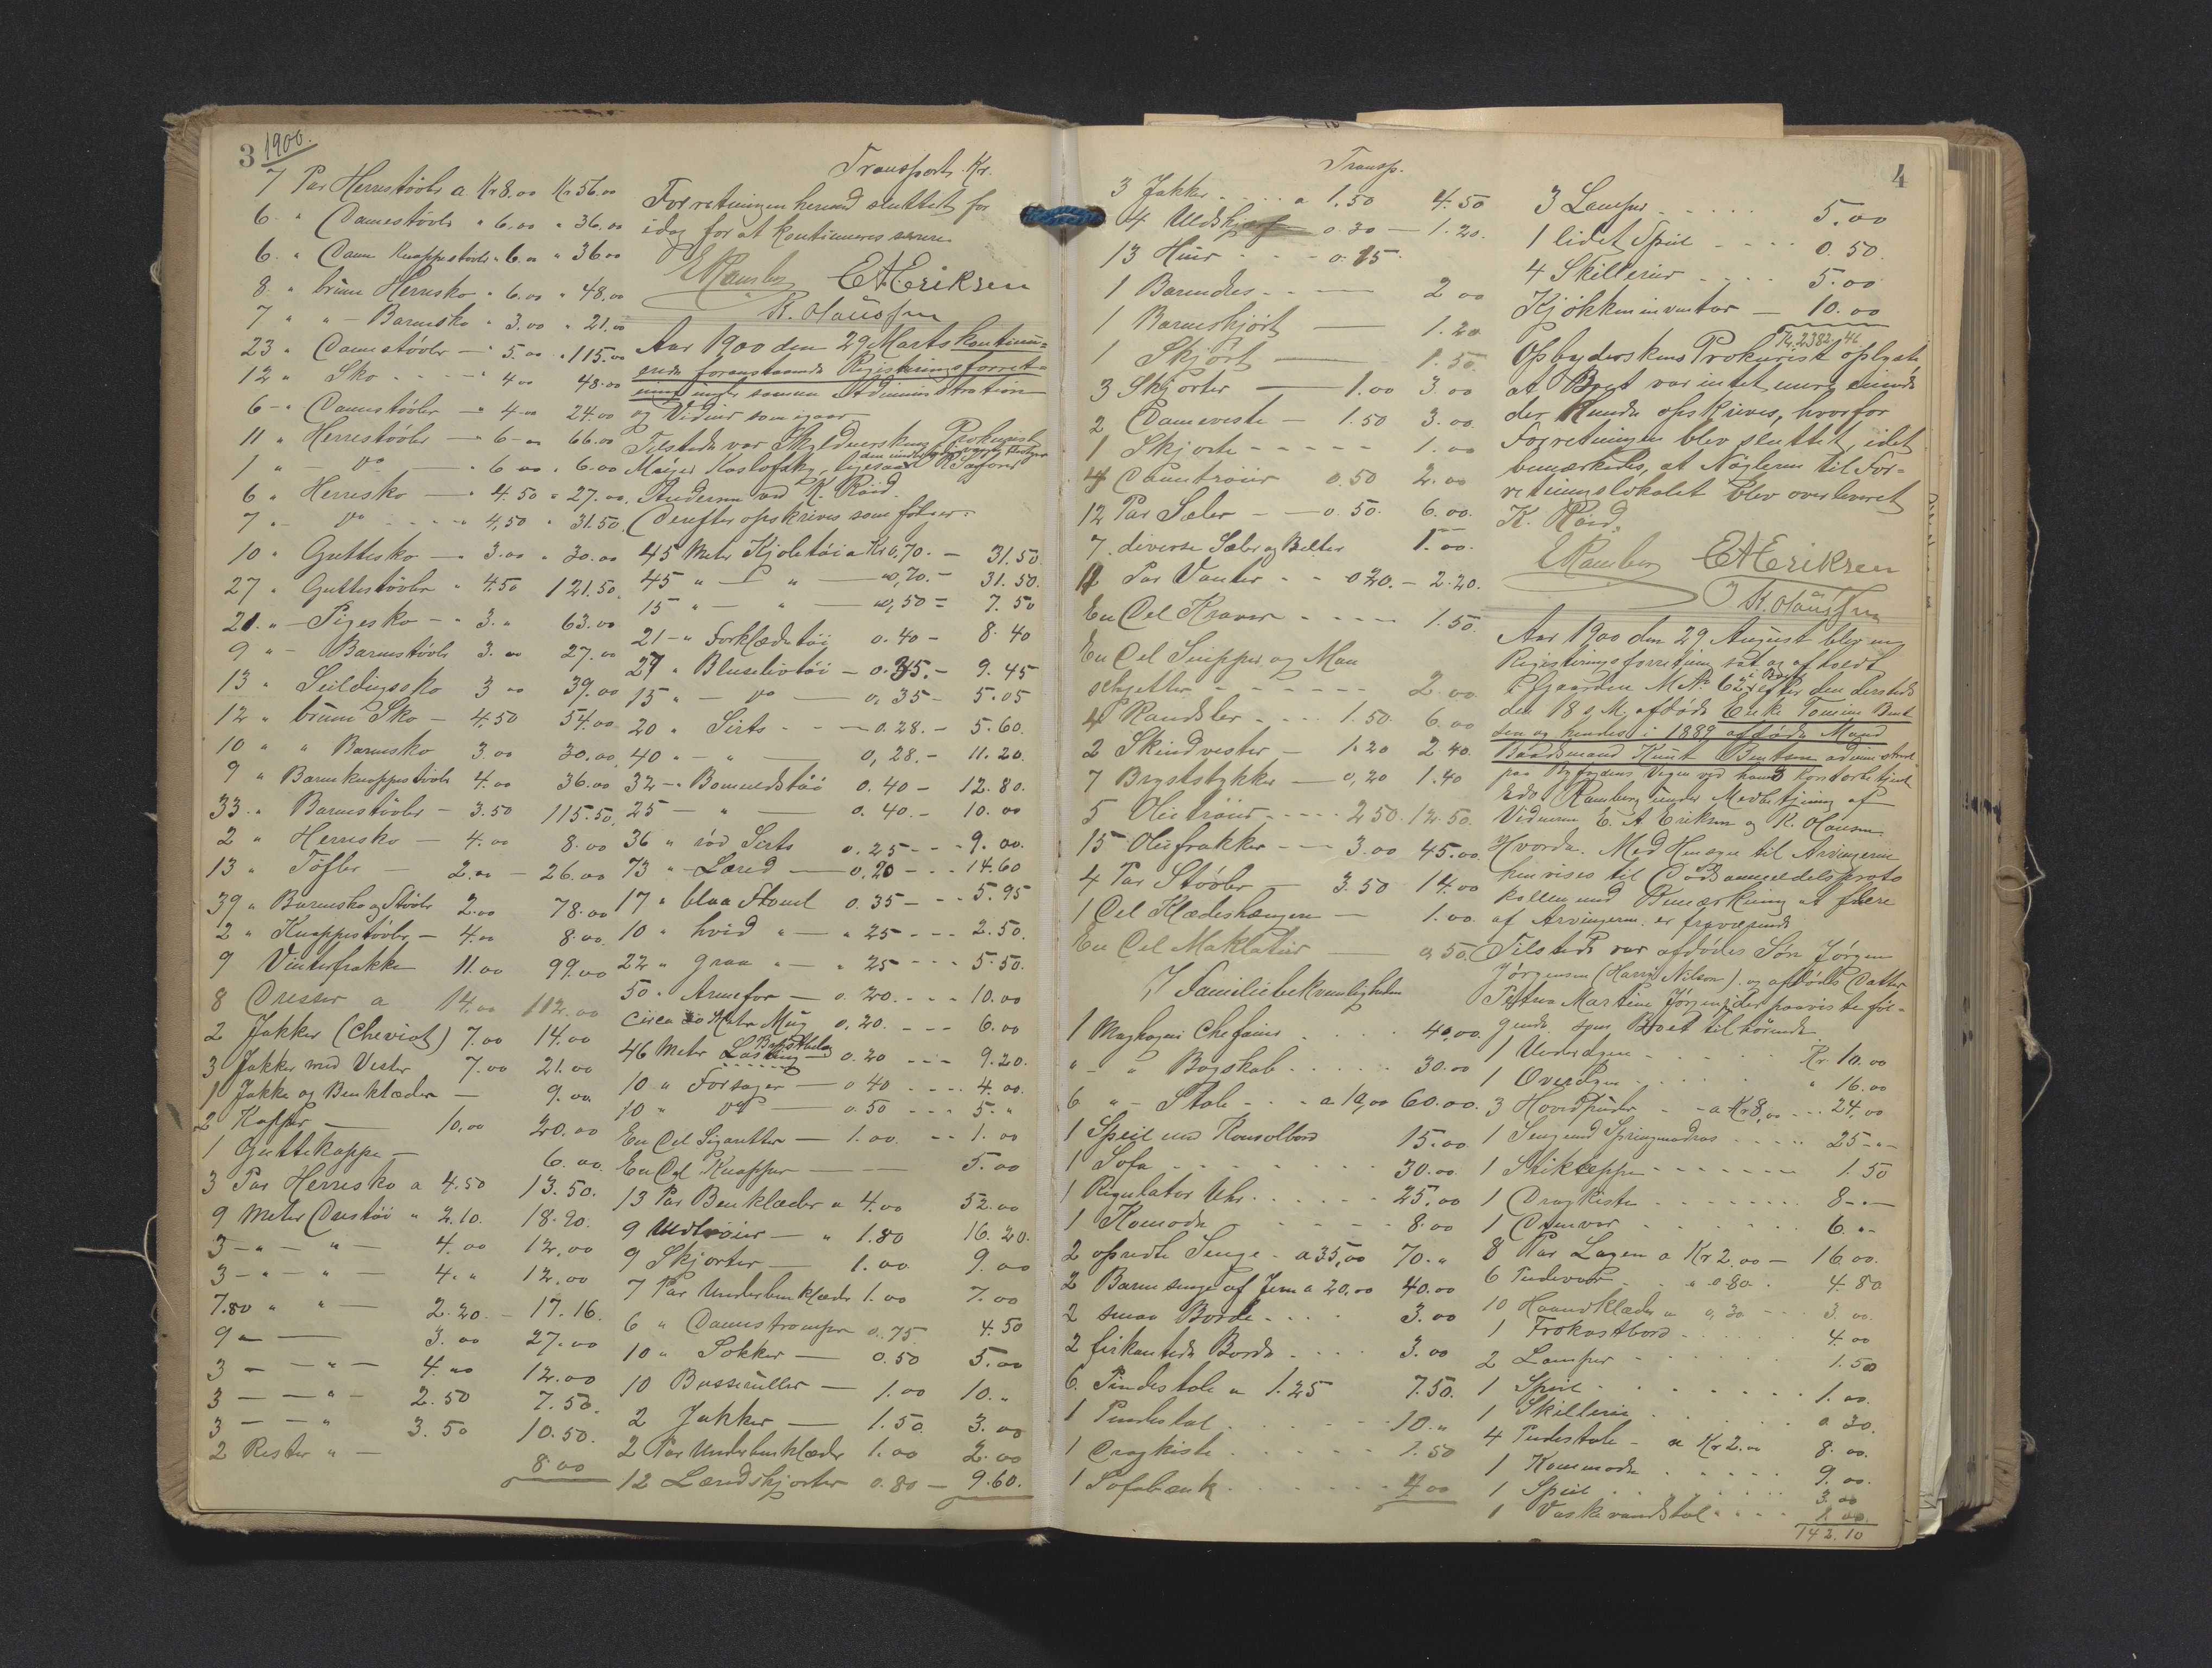 3 1900.
7 Par Herrestøvle a Kr 8.00 Kr 56.00
6 " Damestøvle " 6.00 " 36.00
6 " Dame Knappestøvle " 6.00 " 36.00
8 " brune Herresko " 6.00 " 48.00
7 " " - Barnesko " 3.00 " 21.00
23 " Damestøvler - " 5.00 " 115.00
12 " Sko - - - " 4.00 48.00
6 - " Damestøvler - " 4.00 24.00
11 " Herrestøvler - " 6 - 00 66.00
1 " - Do - " 6 00 " 6.00
6 " Herresko - " 4.50 " 27.00
7 " - Do - - - - " 4,50 " 31.50
10 " Guttesko - " 3.00 " 30.00
27 " Guttestøvler " 4.50 121.50
21 " - Pigesko - " 3. " 63.00
9 " - Barnestøvle 3. 00 27.00
13 " Seildugssko 3 00 39.00
12 " brune Sko - 4.50 54.00
10 " " Barnesko 3.00 30.00
9 " Barneknappestøvle 4.00 36.00
33 " Barnestøvler - 3.50 115.50
2 " Herresko - 4.00 8.00
13 " Tøfler - 2.00 - 26.00
39 " Barnesko og Støvle 2.00 78.00
2 " Knappestøvler - 4.00 8.00
9 Vinterfrakke 11.00 99.00
8 Dresser a 14.00 112.00
2 Jakker (Cheviot) 7.00 14.00
3 Jakker med Vester 7.00 21.00
1 Jakke og Benklæder - 9.00
2 Kapper - 10.00 20.00
1 Guttekappe - 6.00
3 Par Herresko a 4.50 13.50.
9 Meter Drestøi " 2.10. 18.90.
3 - " - " - 4.00 12.00
3 - " - " - 4. " 12.00
7.80 " " - 2.20. - 17.16.
9 " - 3.00 27.00
3 - - " - 4.00 12.00
3 - - " - 2.50 7.50.
3 - - " 3.50 10.50.
2 Rester " - 8 00
Transport Kr.
Forretningen herved sluttet for
idag for at kontinueres senere
E Ramberg E A Eriksen
K. Olaussen
Aar 1900 den 29 Marts kontinu-
eredes foranstaaende Registreringsforret-
ning under samme Administration
og Vidner som igaar
Tilstede var Skyldnerskens Prokurist
Meyer Koslofsky, ligesaa R Sagfører
Andersen ved K. Røed.
Derefter opskrives som følger:
45 Meter Kjoletøi a Kr 0,70. - 31.50
45 " - " - 0,70. - 31.50.
15 " - " - 0,50 - 7.50
21 - " Forklædetøi 0.40 - 8.40
27 " Bluselivtøi - 0.35. - 9.45
15 " - Do - 0,35 - 5.05
20 " Sirts - - 0.28. - 5.60.
40 " - " - 0,28. - 11.20.
32 - " Bomuldstøi 0.40 - 12.80.
25 - " - 0.40. - 10.00
36 " rød Sirts 0.25 - - - 9.00.
73 " - Lærred - 0,20 - - - 14.60
17 " blaa Flonel 0.35 - - - 5.95
10 " hvid " - " 25 - - - 2.50.
22 " graa " - " 25 - - - 5.50.
50 " Armefor - 0.20. - - - 10.00
Circa 30 Meter Mug 0.20. - - - 6.00
46 Meter Lasting 0.20 - - - 9.20.
10 " Forsager - 0 40 - - - - 4.00.
10 " Do - 0.50 - - - 5. "
En Del Sigaretter - 1.00 - - 1.00
En Del Knapper - - 5.00
13 Par Benklæder a 4.00 52.00
9 Uldtrøier - " 1.80 16.20.
9 Skjorter - 1.00 9.00
7 Par Underbenklæder 1.00 7.00
6 " Damestrømper 0.75 4.50
10 " Sokker - 0.50 5.00
10 Busseruller - 1.00 10. "
2 Jakker - 1.50 3.00
2 Par Underbenklæder 1.00 2.00
12 Lærredskjorter 0.80 - 9.60.
4
Transp.
3 Jakker - - - a 1.50 4.50
4 Uldskjørt 0 30 - 1.20.
13 Huer - - - 0.15.
1 Barne - - - 2 00
1 Barneskjørt - 1.20
1 Skjørt - 1.50
3 Skjorter - 1.00 3.00
2 Dameveste - 1.50 3.00.
1 Skjorte - - - - - 1.00
4 Dametrøier 0.50 2.00
12 Par Seler - - 0.50. 6.00.
7. diverse Seler og Belter 1.00.
11 Par Vanter - - 0.20. - 2.20.
En Del Kraver - - - - 1.50.
En Del Snipper og Man
schjetter - - - - - - 2.00.
4 - - - - 1.50 6.00
2 Skindvester - 1.20 2.40.
7 Bryststykker - 0,20 1.40
5 Olietrøier - - - - 2.50. 12.50.
15 Oliefrakker - - 3.00 45.00.
4 Par Støvler - 3.50 14.00
1 Del Klædeshængere - 1.00.
En Del Maklatur - 0 50.
I Familiebekvemmeligheden
1 Mahogni Chefonier . . . . 40.00.
" - " Bogskab . . . . . 30.00
6 " - Stole - . - a 10,00 60.00.
1 Speil med Konsolbord 15.00.
1 Sofa - - - - - - - - 30.00
1 Regulator Uhr . . . . . . 25.00
1 Komode - - - - - - 8.00
2 opredte Senge - a 35,00 70. "
2 Barnesenge af Jern a 20,00 40.00
2 smaa Borde - . . . 3.00
2 firkantede Borde . . . . 3.00
6. Pindestole a 1.25 7.50.
1 Pindestol . . . - - - - 10. "
1 Dragkiste - . . . . . 1.50
1 Sofabænk . . . . . . . 4.00
3 Lamper - . . . . . 5.00
1 lidet Speil - - - - 0.50.
4 Skillerier - - - - 5.00
Kjøkkeninventar - 10.00
Kr. 2382.46
Opbyderskens Prokurist oplyste
at Boet var intet mere eiende
der kunde opskrives, hvorfor
Forretningen blev sluttet, idet
bemærkedes, at Nøglerne til For-
retningslokalet blev overleveret
K. Røed.
E Ramberg E A Eriksen
K. Olaussen
Aar 1900 den 29 August blev en
Registreringsforretning sat og afholdt
i Gaarden M No. 62 efter den dersteds
den 18 d. M. afdøde Enke Tomine Bent
sen og hendes i 1889 afdøde Mand
Baadsmand Knut Bentsen administreret
paa Byfogdens Vegne ved hans Kontorbetjent
Edv. Ramberg under Medbetjening af
Vidnerne E. A Eriksen og K. Olausen.
Hvorda. Med Hensyn til Arvingerne
henvises til Dødsanmeldelsesproto
kollen med Bemærkning at flere
af Arvingerne er fraværende
Tilstede var afdødes Søn Jørgen
Jørgensen (Harris Nilson) og afdødes Datter
Petrea Martine Jørgensen der paaviste føl-
gende som Boet tilhørende
1 Underdyne - - . . . . Kr 10.00
1 Overdyne . . . . . " 16.00
3 Hovedpuder - - a Kr 8,00 - - - 24.00
1 Seng med Springmadras - - - - 25 - " -
1 Stiktæppe - - - - - - - 1.50
1 Dragkiste - - - - - - - 8 - " -
1 - - - . . . - 6. " -
8 Par Lagen a Kr 2.00 - 16.00.
6 Pudevar - . " 0 80 . 4.80
10 Haandklæder a 0,30 - - - 3.00.
1 Frokostbord . . . . . . 4.00
2 Lamper - . . . . . . 1.50
1 Speil - . . . . . . . 1.00.
1 Skilleri . . . . . . . 0 30.
4 Pindestole - a Kr 2.00 8.00.
1 Kommode . . . . . . 9.00.
1 Speil . . . . . . . . 3.00
1 Vaskevandstol . . . . 1.00.
142.10